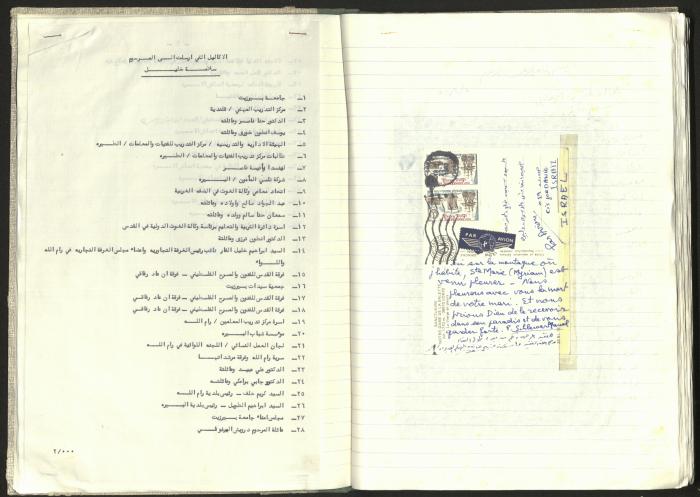 الاكاليل التي ارسلت الى المرحوم
سلامة خليل
١ـ جامعة بيرزيت
٢ـ مركز التدريب المهني / قلندية
٣ـ الدكتور حنا ناصر وعائلته
٤ـ يوسف انطون خوري وعائلته
٥ـ الهيئة الادارية والتدريسية / مركز التدريب للفتيات والمعلمات / الطيره
٦ـ طالبات مركز تدريب الفتيات والمعلمات / الطيره
٧ـ نهضة وأنيسة ناصر
٨ـ شركة تلسي المأمون / البيره
٩ـ اتحاد معلمي وكالة الغوث في الضفه الغربية
١٠ـ عبد الجواد صالح واولاده وعائلته
١١ـ سمعان حنا سالم وولده وعائلته
١٢ـ اسرة دائرة التربية والتعليم برئاسة وكالة الغوث الدولية في القدس
١٣ـ الدكتور انطون ترزي وعائلته
١٤ـ السيد ابراهيم خليل الطار نائب رئيس الغرفة التجاريه واعضاء مجلس الغرفه التجاريه في رام الله
واللواء
١٥ـ فرقة القدس للفنون والمسرح الفلسطيني ـ فرقة ان عاد رفاقي
١٦ـ جمعية سيدات بيرزيت
١٧ـ فرقة القدس للفنون والمسرح الفلسطيني ـ فرقة ان عاد رفاقي
١٨ـ فرقة القدس للفنون والمسرح الفلسطيني ـ فرقة ان عاد رفاقي
١٩ـ اسرة مركز تدريب المعلمين / رام اللـه
٢٠ـ مؤسسة شباب البيره
٢١ـ لجان العمل النسائي / اللجنه اللوائية في رام اللـه
٢٢ـ سرية رام الله وفرقة مرشداتها
٢٣ـ الدكتور علي عبيد وعائلته
٢٤ـ الدكتور جابي برامكي وعائلته
٢٥ـ السيد كريم خلف ـ رئيس بلدية رام اللـه
٢٦ـ السيد ابراهيم الطويل ـ رئيس بلدية البيره
٢٧ـ مجلس امناء جامعة بيرزيت
٢٨ـ عائلة المرحوم درويش
٢/٠٠٠
PAR AVION
ISRAEL
ISRAEL
sur la montagne où
j'habite, Ste Marie (Myriam) est
venu pleurer - Nous
pleurons avec vous la mort
de votre mari. Et nous
prions Dieu de le recevoir
dans son paradis et de vous
garder forte.